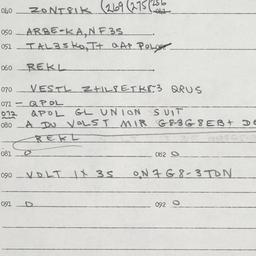 040 ZONTSIK (269 (275 (286
050 ARBE-KA, NF 35
051 TALZSKO, T+ OA+ POL
060 REKL
070 VESTL Z+IL8ETK83 QRUS
071 - QPOL
072 APOL GL UNION SUIT
080 A DU VOLST MIR G8-3G8EB+ D
REKL
081 0 082 0
090 VOLT IX 35 0,N7G8-3TDN
091 0 092 0